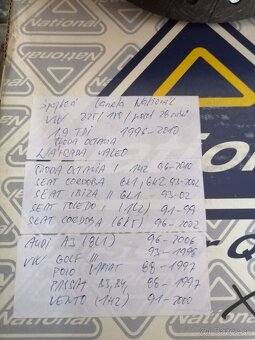 National
Spojková lamela National
VW 225/180/
1,9 TDI 1996-2010
ŠKODA OCTAVIA
NÁHRADA VALEO
ŠKODA OCTAVIA I 1U2 96-2010
SEAT CORDOBA 6K1, 6K2 93-2002
SEAT IBIZA II 6K1 93-02
SEAT TOLEDO I (1L2) 91-99
SEAT CORDOBA (6K5) 96-2002
AUDI A3 (8L1) 96-2006
VW GOLF III 93-1998
POLO VARIANT 88-1997
PASSAT B3, B4 88-1997
VENTO (1H2) 91-2000
National